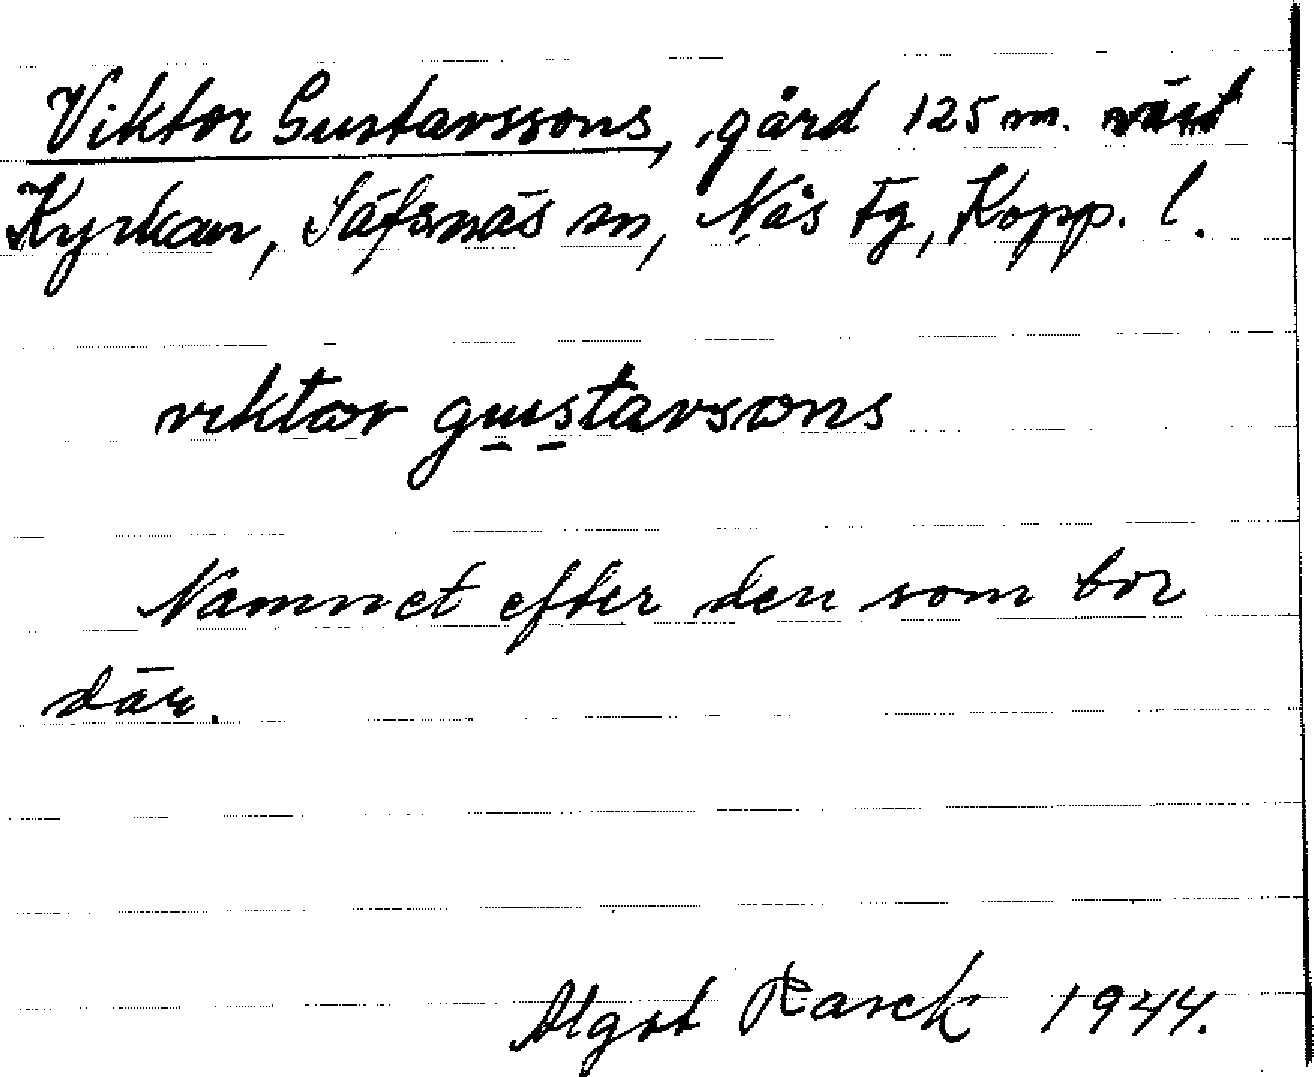 Viktor Gustavssons, gård 125 m. väst
Kyrkan, Säfsnäs sn, Nås tg, Kopp. l.
viktor gustavsons
Namnet efter den som bor
där.
Algot Rasck 1944.